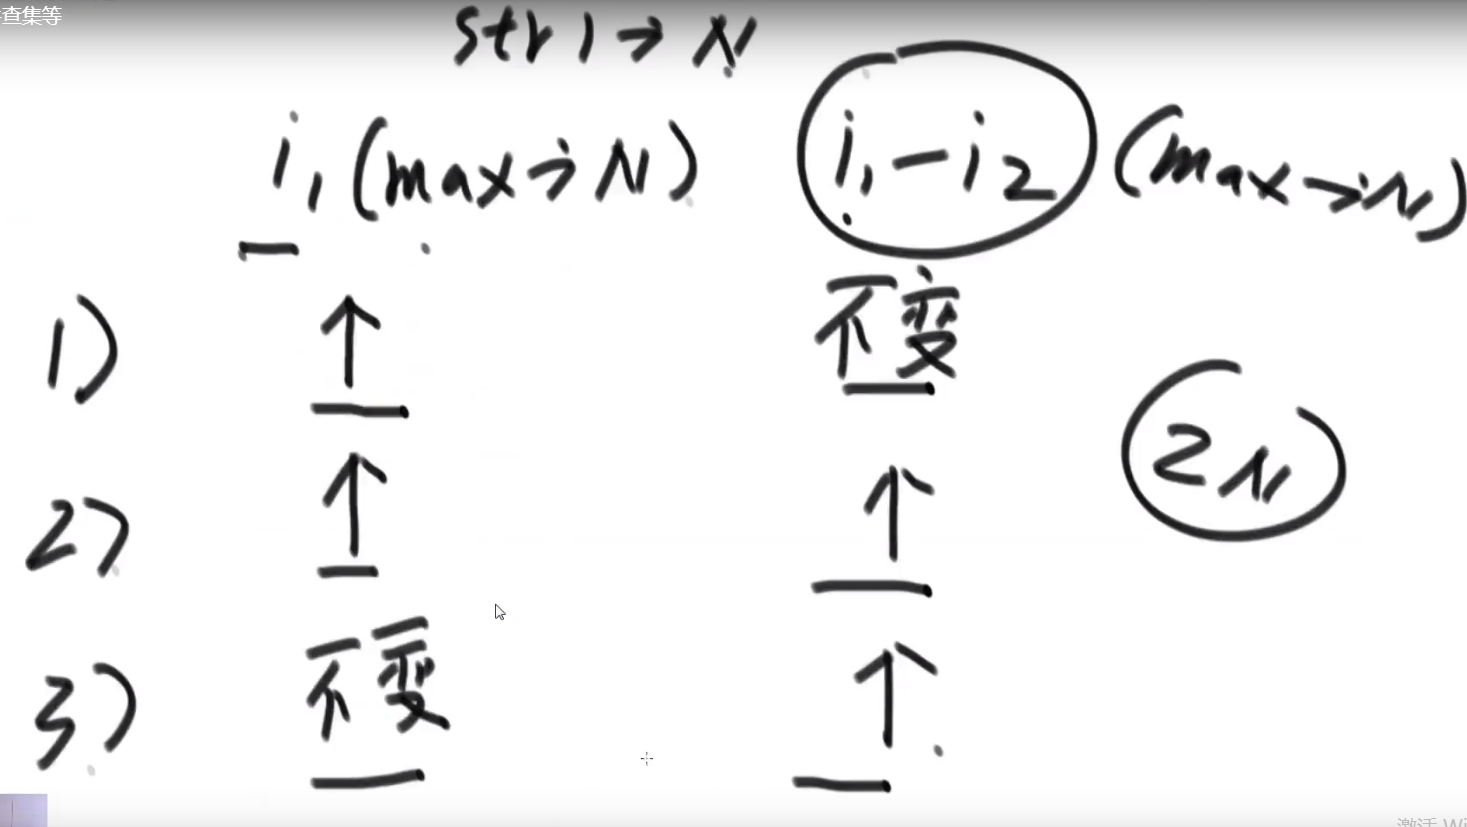 查集等
str1 → N
i1 (max → N) i1 - i2 (max → N)
1) ↑ 不变
2N
2) ↑ ↑
3) 不变 ↑
激活 Wi